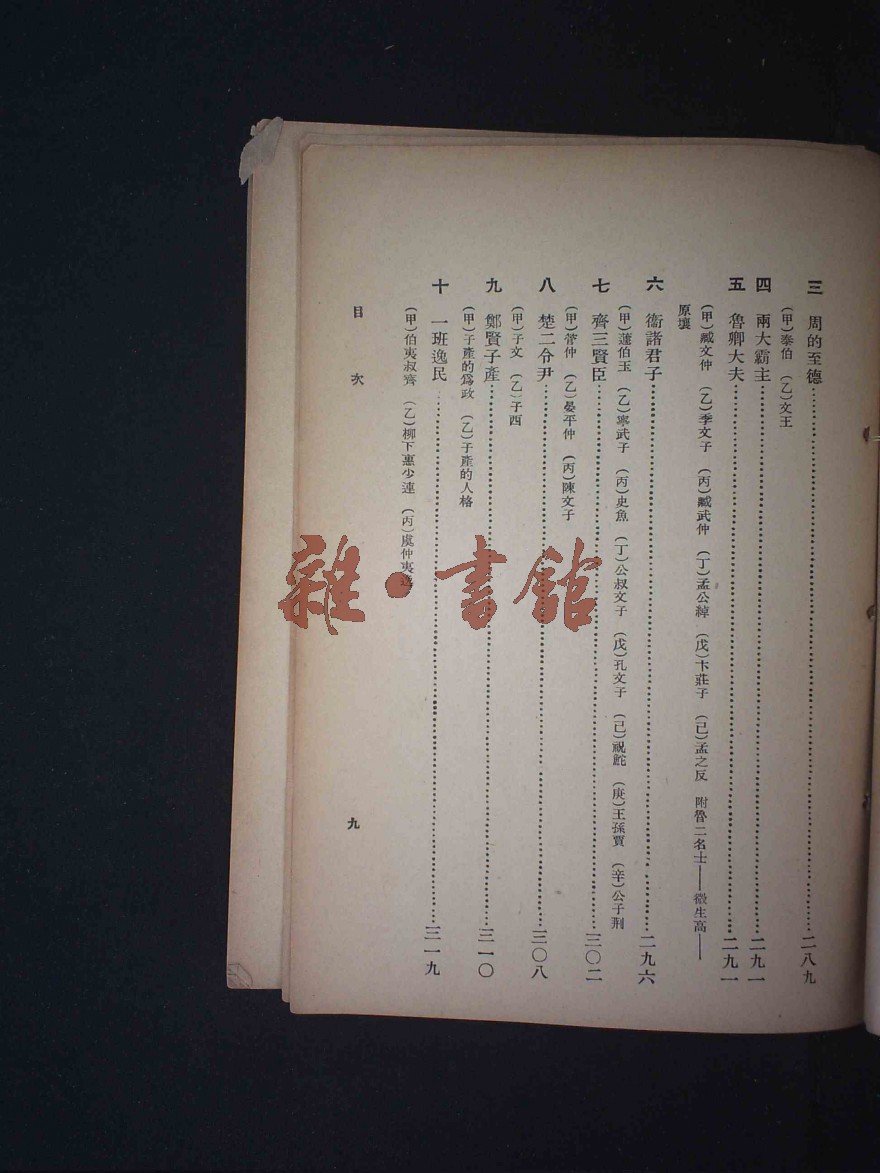 三　周的至德……二八九
（甲）泰伯　（乙）文王
四　兩大霸主……二九一
五　魯卿大夫……二九一
（甲）臧文仲　（乙）季文子　（丙）臧武仲　（丁）孟公綽　（戊）卞莊子　（己）孟之反　附魯二名士——微生高——
原壤
六　衞諸君子……二九六
（甲）蘧伯玉　（乙）寧武子　（丙）史魚　（丁）公叔文子　（戊）孔文子　（己）祝鮀　（庚）王孫賈　（辛）公子荆
七　齊三賢臣……三〇二
（甲）管仲　（乙）晏平仲　（丙）陳文子
八　楚二令尹……三〇八
（甲）子文　（乙）子西
九　鄭賢子產……三一〇
（甲）子產的爲政　（乙）子產的人格
十　一班逸民……三一九
（甲）伯夷叔齊　（乙）柳下惠少連　（丙）虞仲夷逸
目次
九
雜·書館